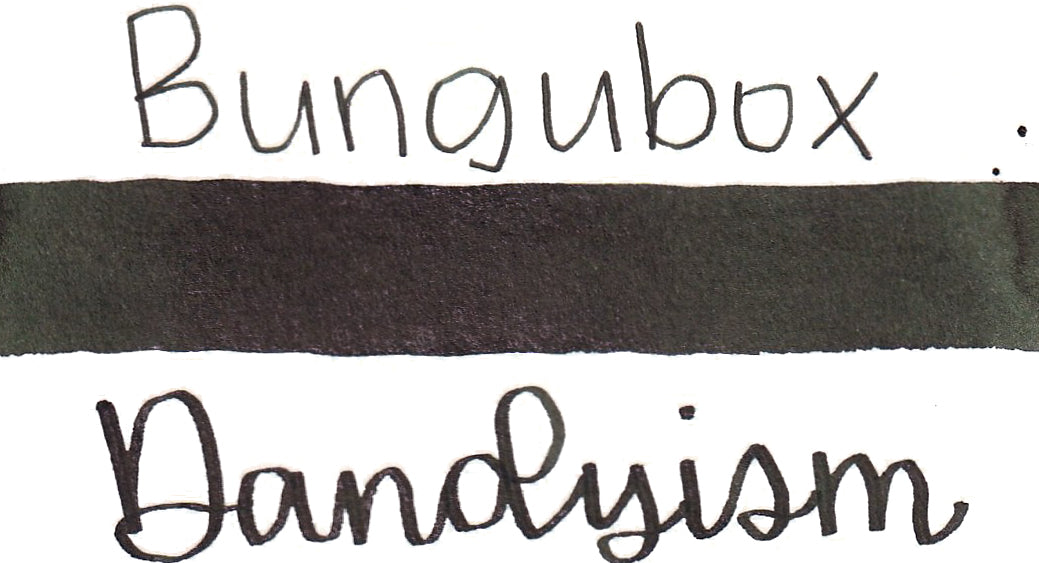 Bungubox
Dandyism